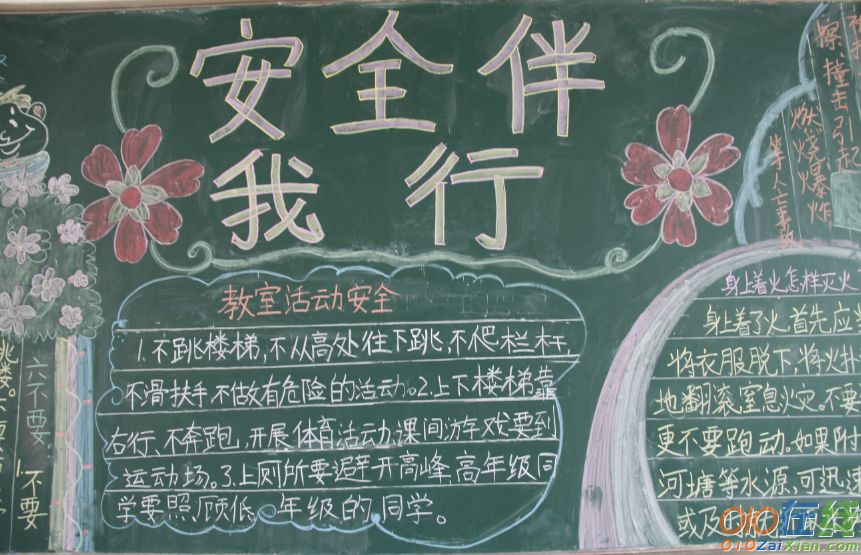 安全伴
我行
教室活动安全
1.不跳楼梯,不从高处往下跳,不爬栏杆,
不滑扶手,不做有危险的活动。2.上下楼梯靠
右行、不奔跑,开展体育活动,课间游戏要到
运动场。3.上厕所要避开高峰,高年级同
学要照顾低 年级的同学。
擦、撞击引起
燃烧爆炸
等人亡事故
身上着火怎样灭火
身上着了火,首先应
将衣服脱下,将火扑
地翻滚,窒息火灾。不要
更不要跑动。如果附
河塘等水源,可迅速
或及
六不要
1.不要
跳楼。
OIO在线
OIOZaiXian.com